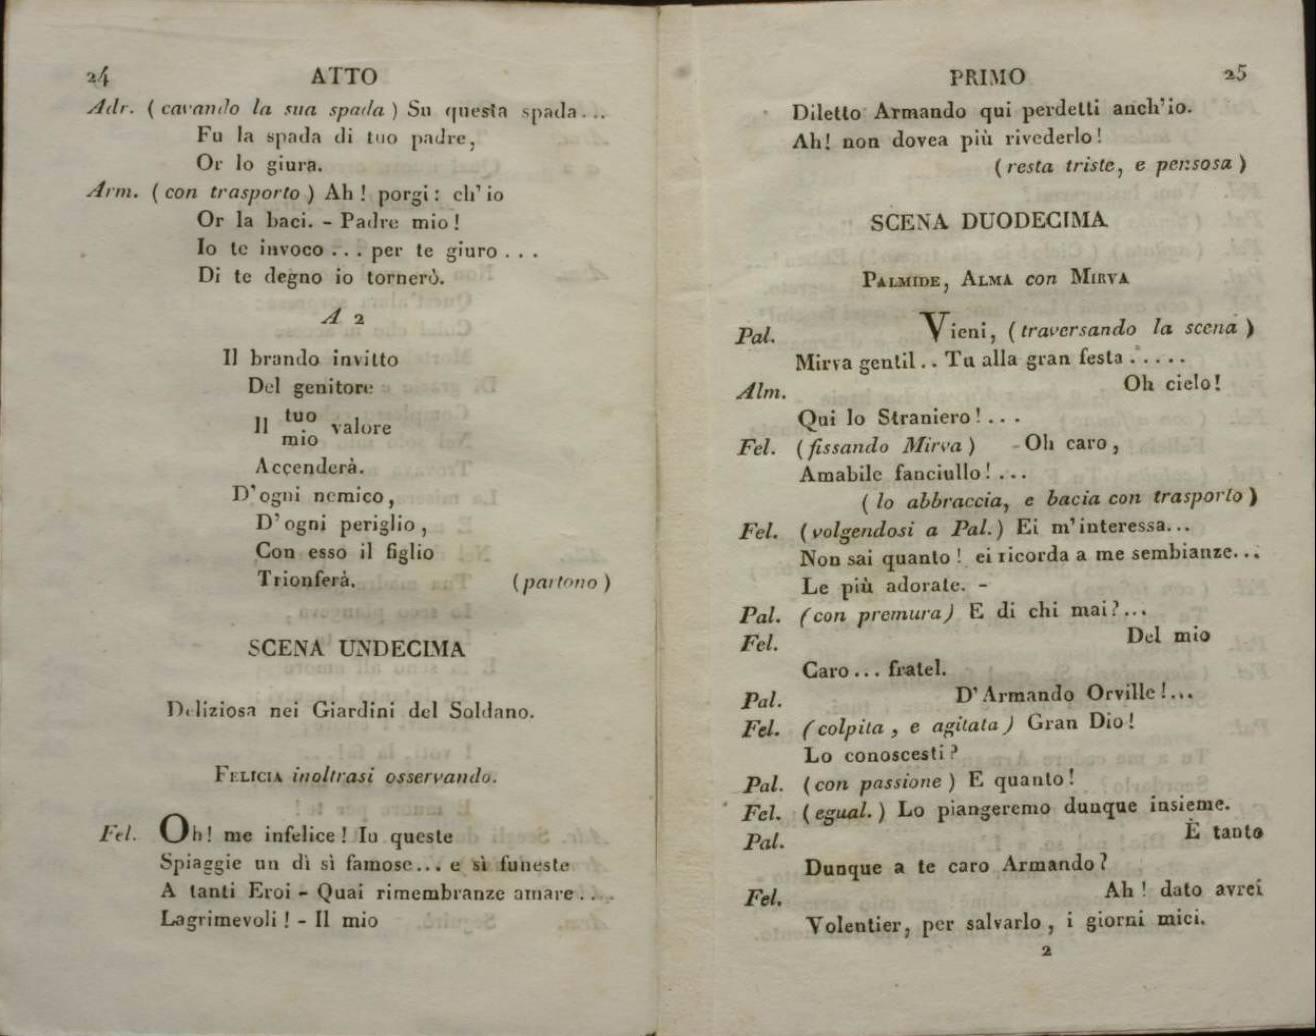 24 ATTO
Adr. ( cavando la sua spada ) Su questa spada...
Fu la spada di tuo padre,
Or lo giura.
Arm. ( con trasporto ) Ah! porgi: ch'io
Or la baci. - Padre mio!
Io te invoco ... per te giuro ...
Di te degno io tornerò.
A 2
Il brando invitto
Del genitore
Il tuo valore
mio
Accenderà.
D'ogni nemico,
D'ogni periglio,
Con esso il figlio
Trionferà. ( partono )
SCENA UNDECIMA
Deliziosa nei Giardini del Soldano.
FELICIA inoltrasi osservando.
Fel. Oh! me infelice! In queste
Spiaggie un dì sì famose... e sì funeste
A tanti Eroi - Quai rimembranze amare...
Lagrimevoli! - Il mio
PRIMO 25
Diletto Armando qui perdetti anch'io.
Ah! non dovea più rivederlo!
( resta triste, e pensosa )
SCENA DUODECIMA
PALMIDE, ALMA con MIRVA
Pal. Vieni, ( traversando la scena )
Mirva gentil.. Tu alla gran festa .....
Alm. Oh cielo!
Qui lo Straniero! ...
Fel. ( fissando Mirva ) - Oh caro,
Amabile fanciullo! ...
( lo abbraccia, e bacia con trasporto )
Fel. (volgendosi a Pal.) Ei m'interessa...
Non sai quanto! ei ricorda a me sembianze...
Le più adorate. -
Pal. (con premura) E di chi mai?...
Fel. Del mio
Caro... fratel.
Pal. D'Armando Orville!...
Fel. (colpita, e agitata) Gran Dio!
Lo conoscesti?
Pal. (con passione) E quanto!
Fel. (egual.) Lo piangeremo dunque insieme.
Pal. È tanto
Dunque a te caro Armando?
Fel. Ah! dato avrei
Volentier, per salvarlo, i giorni miei.
2